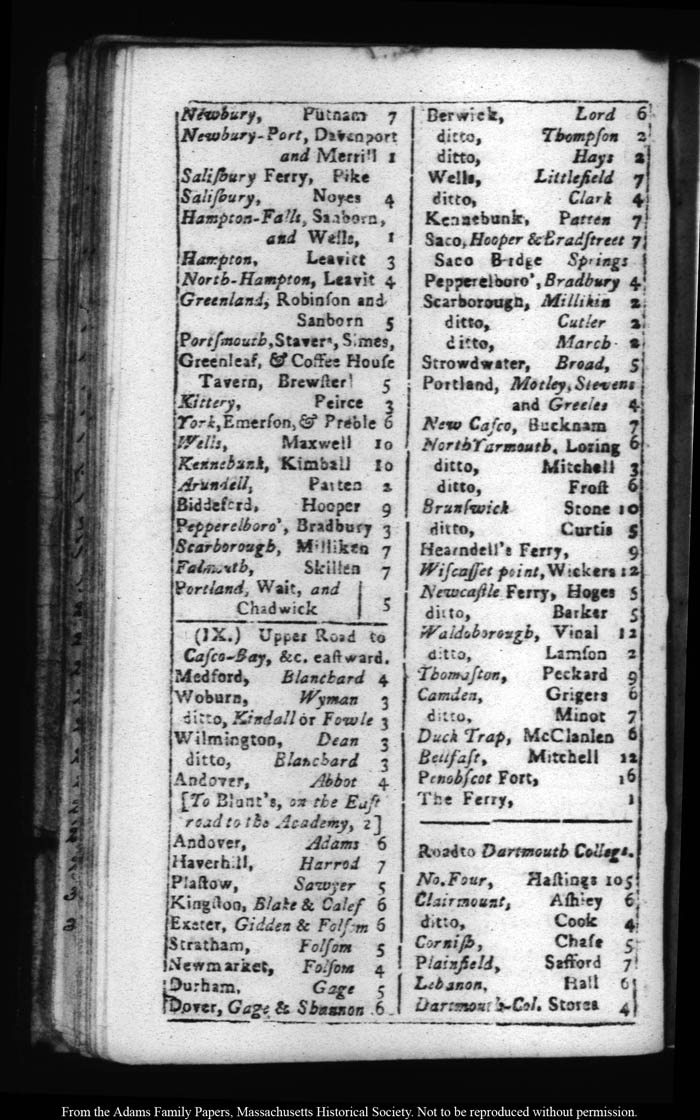 Newbury, Putnam 7
Newbury-Port, Davenport
and Merrill 1
Saliſbury Ferry, Pike
Saliſbury, Noyes 4
Hampton-Falls, Sanborn,
and Wells, 1
Hampton, Leavitt 3
North-Hampton, Leavit 4
Greenland, Robinſon and
Sanborn 5
Portſmouth, Stavers, Simes,
Greenleaf, & Coffee Houſe
Tavern, Brewſter 5
Kittery, Peirce 3
York, Emerſon, & Preble 6
Wells, Maxwell 10
Kennebunk, Kimball 10
Arundell, Patten 2
Biddeford, Hooper 9
Pepperelboro', Bradbury 3
Scarborough, Milliken 7
Falmouth, Skillen 7
Portland, Wait, and
Chadwick 5
(IX.) Upper Road to
Caſco-Bay, &c. eaſtward.
Medford, Blanchard 4
Woburn, Wyman 3
ditto, Kindall or Fowle 3
Wilmington, Dean 3
ditto, Blanchard 3
Andover, Abbot 4
[To Blunt's, on the Eaſt
road to the Academy, 2]
Andover, Adams 6
Haverhill, Harrod 7
Plaſtow, Sawyer 5
Kingſton, Blake & Calef 6
Exeter, Gidden & Folſom 6
Stratham, Folſom 5
Newmarket, Folſom 4
Durham, Gage 5
Dover, Gage & Shannon 6
Berwick, Lord 6
ditto, Thompſon 2
ditto, Hays 2
Wells, Littlefield 7
ditto, Clark 4
Kennebunk, Patten 7
Saco, Hooper & Bradſtreet 7
Saco Bridge Springs
Pepperelboro', Bradbury 4
Scarborough, Millikin 2
ditto, Cutler 2
ditto, March 2
Strowdwater, Broad, 5
Portland, Motley, Stevens
and Greeles 4
New Caſco, Bucknam 7
North Yarmouth, Loring 6
ditto, Mitchell 3
ditto, Froſt 6
Brunſwick Stone 10
ditto, Curtis 5
Hearndell's Ferry, 9
Wiſcaſſet point, Wickers 12
Newcaſtle Ferry, Hoges 5
ditto, Barker 5
Waldoborough, Vinal 12
ditto, Lamſon 2
Thomaſton, Peckard 9
Camden, Grigers 6
ditto, Minot 7
Duck Trap, McClanlen 6
Bellfaſt, Mitchell 12
Penobſcot Fort, 16
The Ferry, 1
Road to Dartmouth College.
No. Four, Haſtings 105
Clairmount, Aſhley 6
ditto, Cook 4
Corniſh, Chaſe 5
Plainfield, Safford 7
Lebanon, Hall 6
Dartmouth-Col. Stores 4
From the Adams Family Papers, Massachusetts Historical Society. Not to be reproduced without permission.